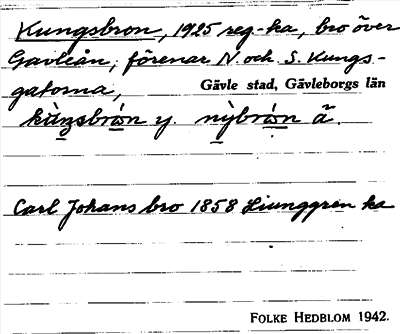 Kungsbron, 1925 reg-ka, bro över
Gavleån, förenar N. och S. Kungs-
gatorna,
Gävle stad, Gävleborgs län
kùŋsbrón y. nỳbrón ä.
Carl Johans bro 1858 Ljunggren ka
FOLKE HEDBLOM 1942.